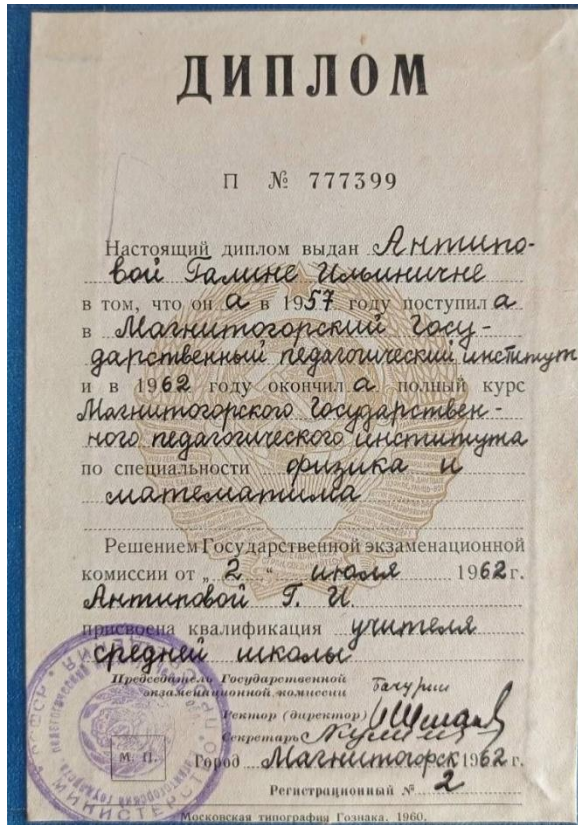 ДИПЛОМ
П № 777399
Настоящий диплом выдан Антипо-
вой Галине Ильиничне
в том, что он а в 1957 году поступил а
в Магнитогорский Госу-
дарственный педагогический институт
и в 1962 году окончил а полный курс
Магнитогорского Государствен-
ного педагогического института
по специальности физика и
математика
Решением Государственной экзаменационной
комиссии от „2“ июля 1962 г.
Антиповой Г. И.
присвоена квалификация учителя
средней школы
Председатель Государственной
экзаменационной комиссии
Ректор (директор)
Секретарь
М. П.
Город Магнитогорск 1962 г.
Регистрационный № 2
Московская типография Гознака. 1960.